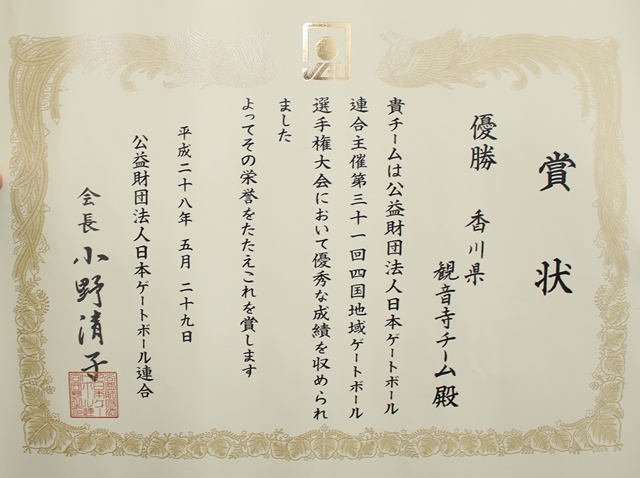 JGU
賞状
優勝 香川県
観音寺チーム殿
貴チームは公益財団法人日本ゲートボール
連合主催第三十一回四国地域ゲートボール
選手権大会において優秀な成績を収められ
ました
よってその栄誉をたたえこれを賞します
平成二十八年 五月 二十九日
公益財団法人日本ゲートボール連合
会長 小野清子